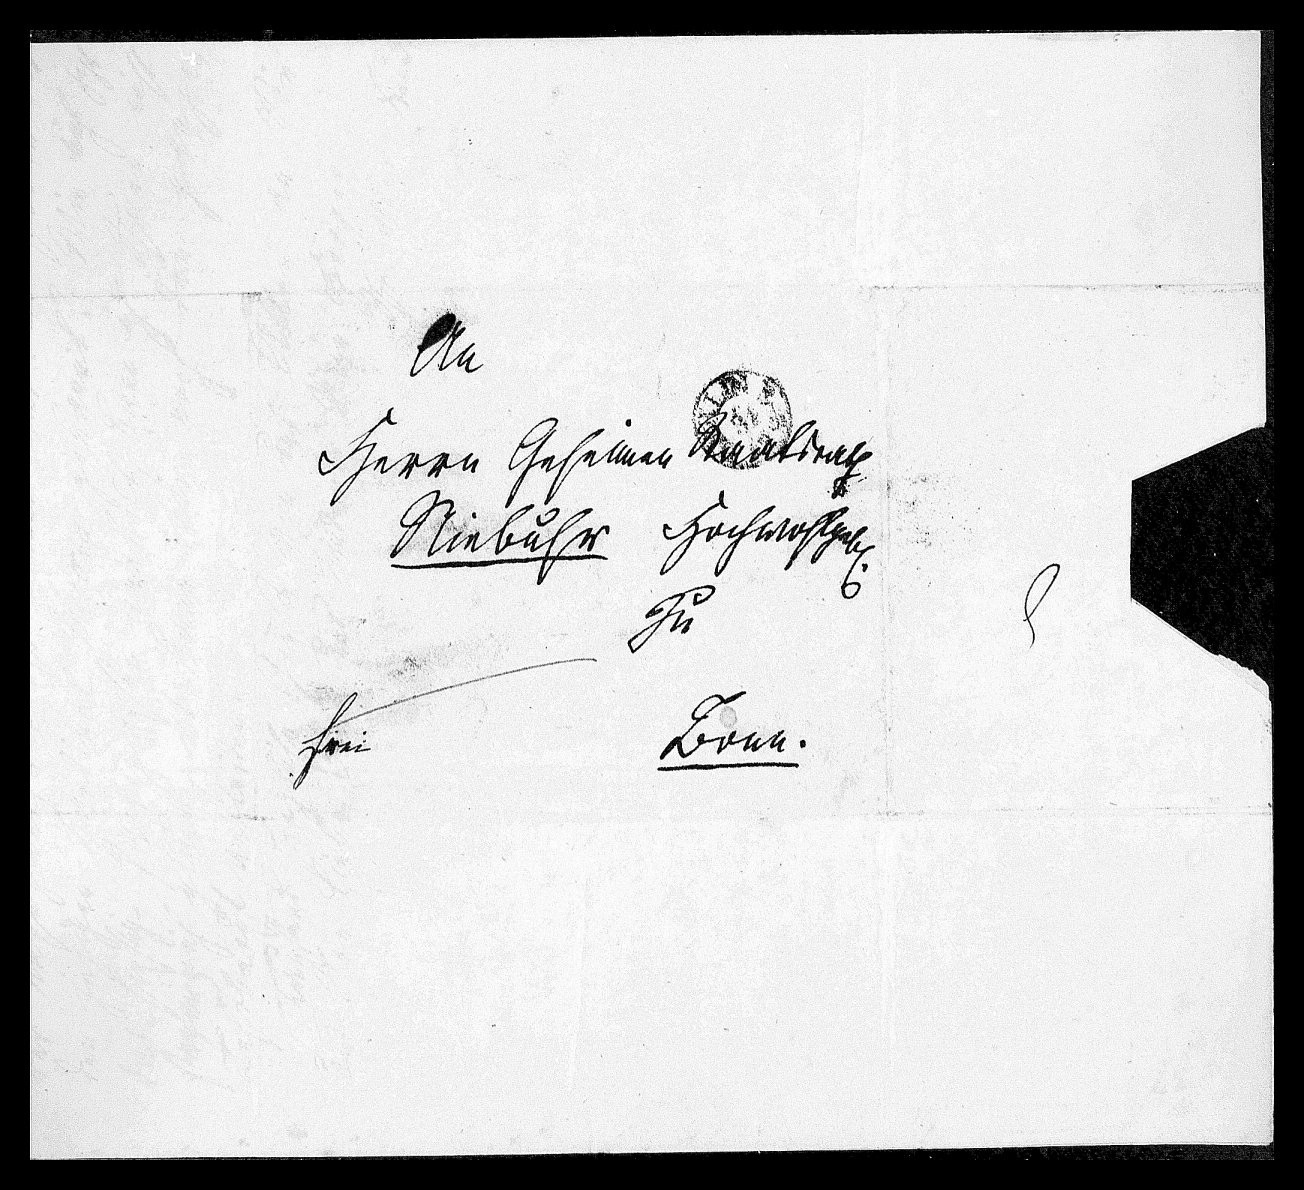 An
Herrn Geheimen Staatsrath
Niebuhr Hochwohlgeb.
Zu
frei Bonn.